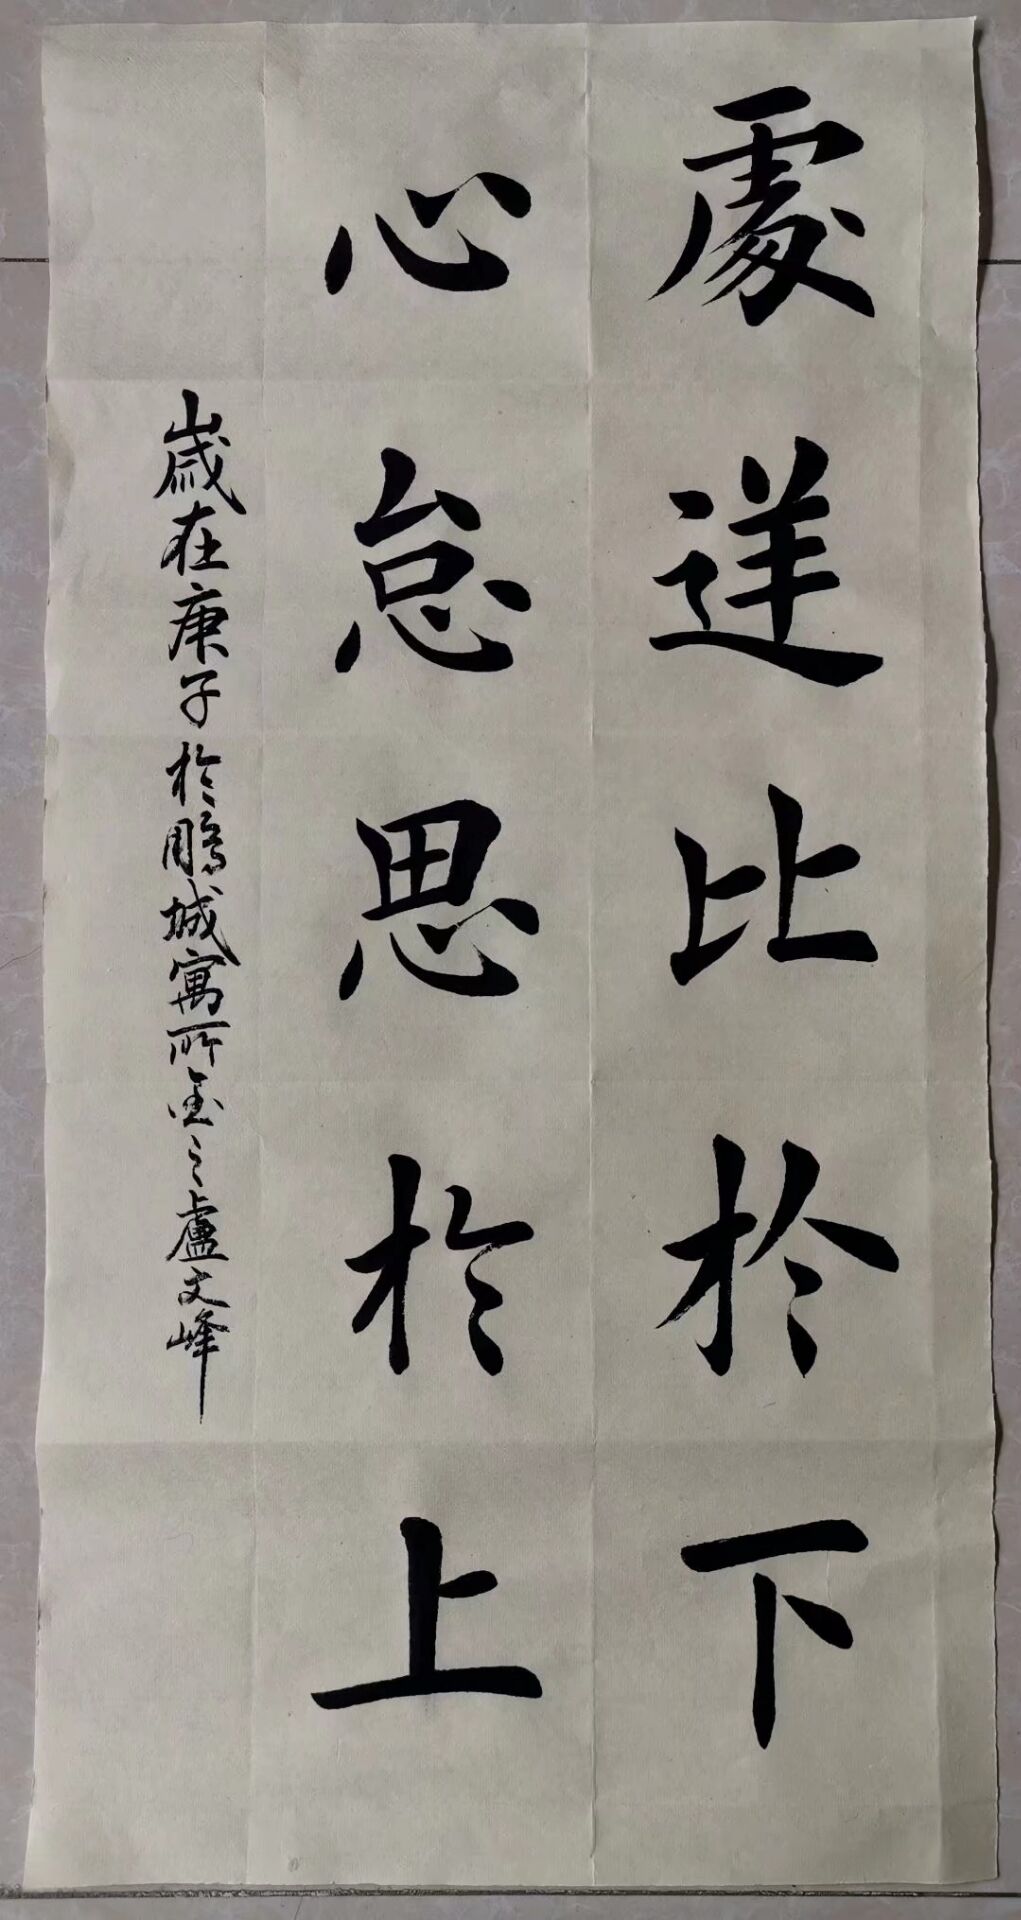 處逆比於下
心怠思於上
歲在庚子於鵬城寓所書之盧文峰